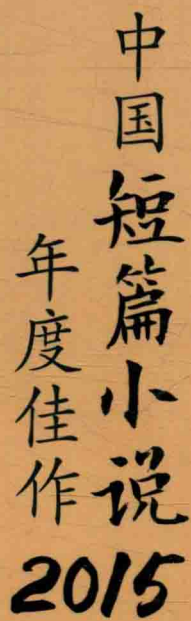 中国短篇小说
年度佳作
2015